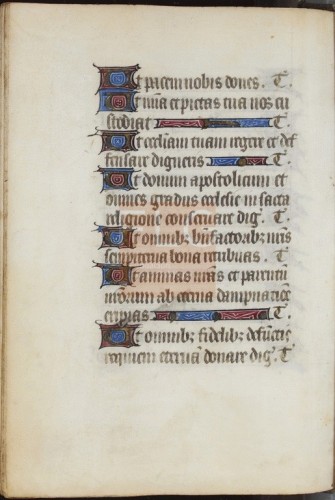 Et pacem nobis dones. T.
Et mīa et pietas tua nos cu
stodiat T.
Et eccliam tuam regere et def
fensare digneris T.
Et domum apostolicum et
omnes gradus ecclesie in sacta
religione conseruare dig̃. T.
Et omnibꝫ bn̄factoribꝫ nr̄is
sempiterna bona retribuas. T.
Et animas nr̄as et parentū
nr̄orum ab eterna dampnatiōe
eripias T.
Et omnibꝫ fidelibꝫ defūctis
requiem eternā donare dig̃. T